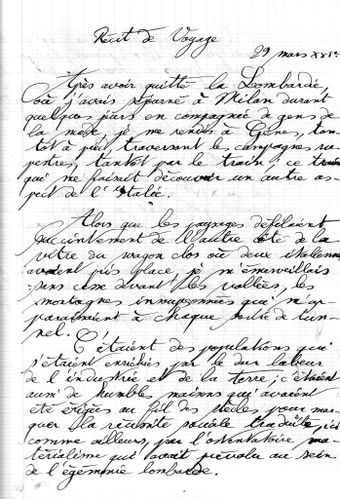 Récit de Voyage
29 mars
Après avoir quitté la Lombardie,
où j'avais séjourné à Milan durant
quelques jours en compagnie de gens de
la mode, je me rendis à Gênes, tan-
tôt à pied, traversant les campagnes ru-
pestres, tantôt par le train; ce train
qui me faisait découvrir un autre as-
pect de l'Italie.
Alors que les paysages défilaient
succintement de l'autre côté de la
vitre du wagon clos où deux italiennes
avaient pris place, je m'émerveillais
sans cesse devant les vallées, les
montagnes insoupçonnées qui m'ap-
paraissaient à chaque sortie de tun-
nel.
C'étaient des populations qui
s'étaient enrichies par le dur labeur
de l'industrie et de la terre; c'étaient
aussi de humbles maisons qui avaient
été érigées au fil des siècles pour mar-
quer la réussite sociale traduite, ici
comme ailleurs, par l'ostentatoire ma-
térialisme qui avait prévalu au sein
de l'égémonie lombarde.